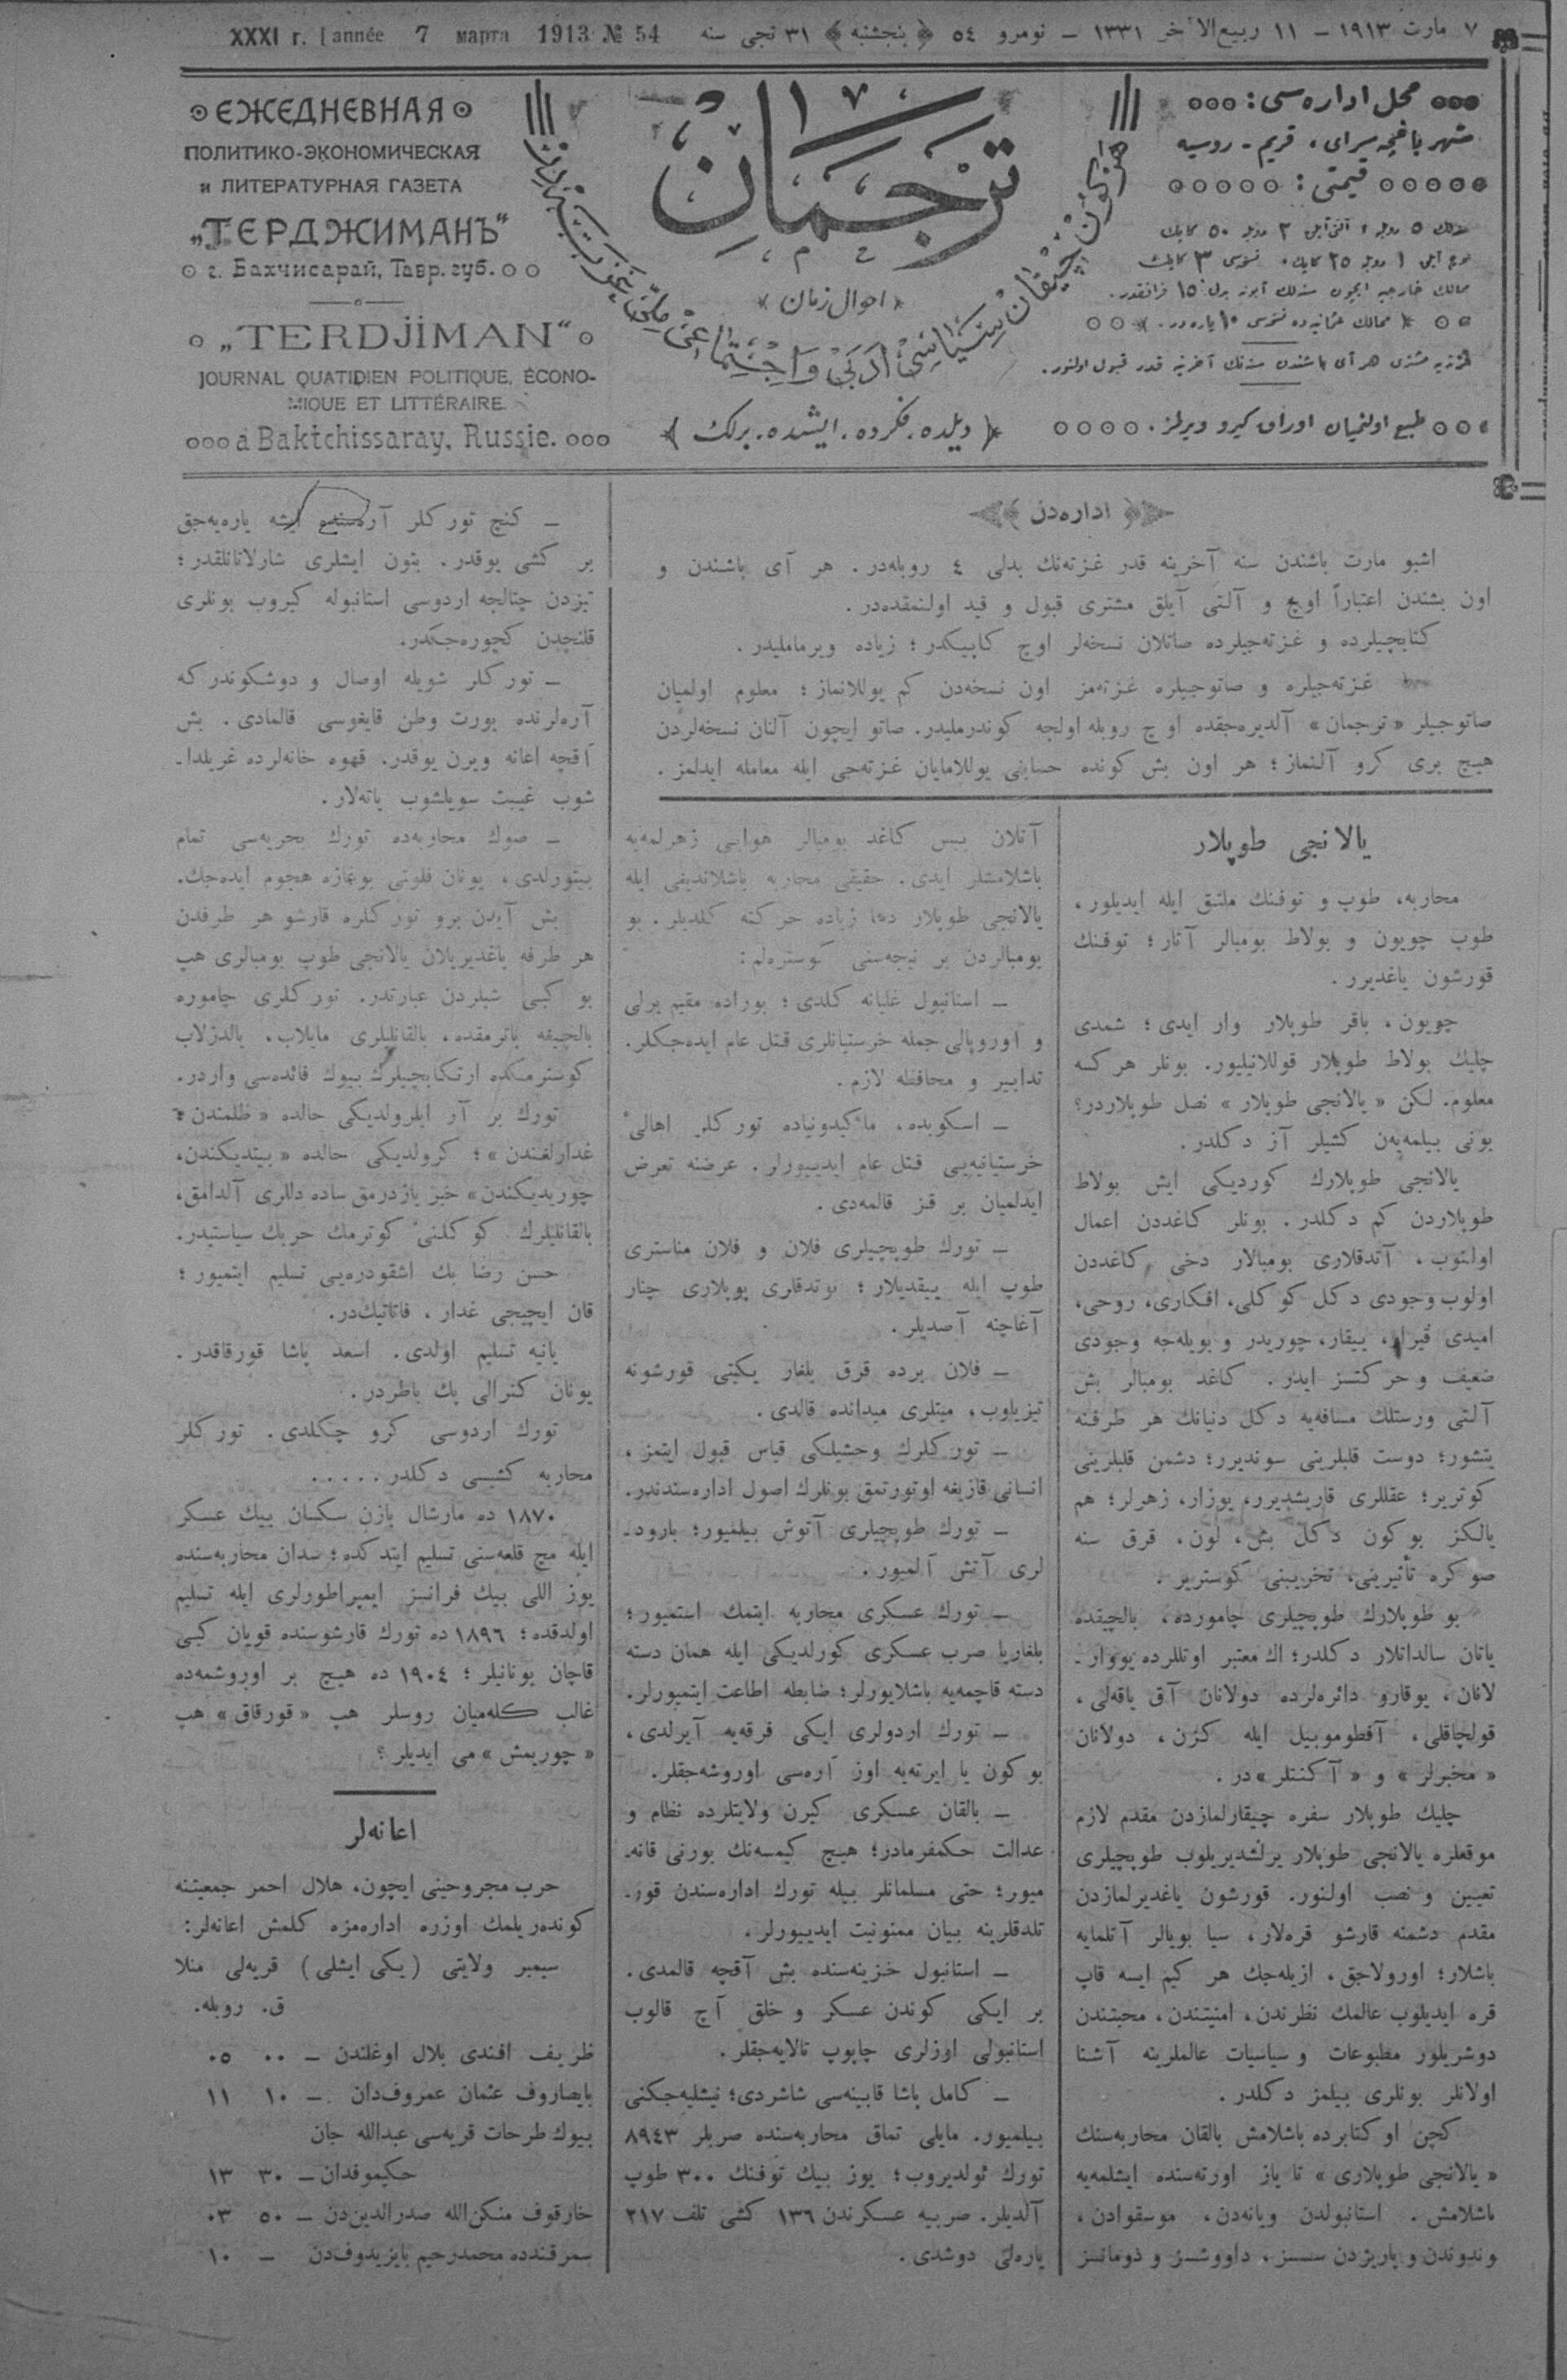 ٧ مارت ١٩١٣ – ١١ ربيع‌الآخر ١٣٣١ – نومرو ٥٤ ﴿ پنجشنبه ﴾ ٣١ نجی سنه
XXXI г. | année 7 марта 1913 № 54
ЕЖЕДНЕВНАЯ
ПОЛИТИКО-ЭКОНОМИЧЕСКАЯ
и ЛИТЕРАТУРНАЯ ГАЗЕТА
„ТЕРДЖИМАНЪ“
г. Бахчисарай, Тавр. губ.
„TERDJIMAN“
JOURNAL QUATIDIEN POLITIQUE, ÉCONO-
MIQUE ET LITTÉRAIRE
à Baktchissaray, Russie.
ترجمان
﴿ احوال زمان ﴾
هر كون چیقان سیاسی ادبی و اجتماعی ملی غزته‌در
﴿ دیلده . فكرده . ایشده . برلك ﴾
محل اداره‌سی :
شهر باغچه‌سرای ، قریم - روسیه
قیمتی :
سنه‌لك ٥ روبله ، آلتی آیلق ٢ روبله ٥٠ كاپیك
اوچ آیلق ١ روبله ٢٥ كاپیك . نسخه‌سی ٣ كاپیك
ممالك خارجیه ایچون سنه‌لك آبونه بدلی ١٥ فرانقدر .
ممالك عثمانیه‌ده نسخه‌سی ١٠ پاره‌در .
غزته‌یه مشتری هر آی باشندن سنه‌نك آخرینه قدر قبول اولنور .
طبع اولنمیان اوراق كیرو ویرلمز .
﴿ اداره‌دن ﴾
اشبو مارت باشندن سنه آخرینه قدر غزته‌نك بدلی ٤ روبله‌در . هر آی باشندن و
اون بشندن اعتباراً اوچ و آلتی آیلق مشتری قبول و قید اولنمقده‌در .
كتابچیلرده و غزته‌جیلرده صاتلان نسخه‌لر اوچ كاپیكدر ؛ زیاده ویرماملیدر .
غزته‌جیلره و صاتوجیلره غزته‌مز اون نسخه‌دن كم یوللانماز ؛ معلوم اولمیان
صاتوجیلر « ترجمان » آلدیره‌جقده اوچ روبله اولجه كوندرملیدر. صاتو ایچون آلنان نسخه‌لردن
هیچ بری كرو آلنماز ؛ هر اون بش كونده حسابنی یوللامایان غزته‌جی ایله معامله ایدلمز .
یالانجی طوپلار
محاربه، طوپ و توفنك ملتق ایله ایدیلور ،
طوپ چویون و بولاط بومبالر آتار ؛ توفنك
قورشون یاغدیرر .
چویون ، باقر طوپلار وار ایدی ؛ شمدی
چلیك بولاط طوپلار قوللانیلیور. بونلر هركسه
معلوم. لكن « یالانجی طوپلار » نصل طوپلاردر؟
بونی بیلمه‌یەن كشیلر آز دكلدر .
یالانجی طوپلارك كوردیكی ایش بولاط
طوپلاردن كم دكلدر . بونلر كاغددن اعمال
اولنوب ، آتدقلاری بومبالار دخی كاغددن
اولوب وجودی دكل كوكلی، افكاری، روحی،
امیدی قیرار، ییقار، چوریدر و بویله‌جه وجودی
ضعیف و حركتسز ایدر . كاغد بومبالر بش
آلتی ورستلك مسافه‌یه دكل دنیانك هر طرفنه
یتشور؛ دوست قلبلرینی سوندیرر؛ دشمن قلبلرینی
كوتریر ؛ عقللری قاریشدیرر، بوزار، زهرلر؛ هم
یالكز بوكون دكل بش، اون، قرق سنه
صوكره تأثیرینی، تخریبنی كوستریر .
بو طوپلارك طوپچیلری چامورده ، بالچیقده
یاتان سالداتلار دكلدر؛ اك معتبر اوتللرده یووار-
لانان ، یوقارو دائره‌لرده دولانان آق یاقه‌لی ،
قولچاقلی ، آفطوموبیل ایله كزن ، دولانان
« مخبرلر » و « آكنتلر » در .
چلیك طوپلار سفره چیقارلمازدن مقدم لازم
موقعلره یالانجی طوپلار یرلشدیریلوب طوپچیلری
تعیین و نصب اولنور. قورشون یاغدیرلمازدن
مقدم دشمنه قارشو قره‌لار ، سیا بویالر آتلمایه
باشلار؛ اورولاجق ، ازیله‌جك هر كیم ایسه قاپ
قره ایدیلوب عالمك نظرندن ، امنیتندن ، محبتندن
دوشریلور مطبوعات و سیاسیات عالملرینه آشنا
اولانلر بونلری بیلمز دكلدر .
كچن اوكتابرده باشلامش بالقان محاربه‌سنك
« یالانجی طوپلاری » تا یاز اورته‌سنده ایشلمه‌یه
باشلامش . استانبولدن ویانه‌دن ، موسقوادن ،
وندوندن و پاریژدن سسسز ، داووشسز و دومانسز
آتلان یبس كاغد بومبالر هوایی زهرلمه‌یه
باشلامشلر ایدی. حقیقی محاربه باشلاندیغی ایله
یالانجی طوپلار دها زیاده حركته كلدیلر . بو
بومبالردن بر نیجه‌سنی كوستره‌لم :
– استانبول غلیانه كلدی ؛ بوراده مقیم یرلی
و اوروپالی جمله خرستیانلری قتل عام ایده‌جكلر.
تدابیر و محافظه لازم .
– اسكوبده ، ماكیدونیاده توركلر اهالیٔ
خرستیانیه‌یی قتل عام ایدییورلر . عرضنه تعرض
ایدلمیان بر قز قالمه‌دی .
– تورك طوپچیلری فلان و فلان مناستری
طوپ ایله ییقدیلار ؛ توتدقلری پوپلاری چنار
آغاچنه آصدیلر .
– فلان یرده قرق بلغار یكیتی قورشونه
تیزیلوب ، میتلری میدانده قالدی .
– توركلرك وحشیلكی قیاس قبول ایتمز ،
انسانی قازیغه اوتورتمق بونلرك اصول اداره‌سندندر.
– تورك طوپچیلری آتوش بیلمیور؛ بارود-
لری آتش آلمیور .
– تورك عسكری محاربه ایتمك استمیور ؛
بلغاریا صرب عسكری كورلدیكی ایله همان دسته
دسته قاچمه‌یه باشلایورلر؛ ضابطه اطاعت ایتمیورلر.
– تورك اردولری ایكی فرقه‌یه آیرلدی ،
بوكون یا ایرته‌یه اوز آره‌سی اوروشه‌جقلر.
– بالقان عسكری كیرن ولایتلرده نظام و
عدالت حكمفرمادر؛ هیچ كیمسه‌نك بورنی قانه-
میور؛ حتی مسلمانلر بیله تورك اداره‌سندن قور-
تلدقلرینه بیان ممنونیت ایدییورلر .
– استانبول خزینه‌سنده بش آقچه قالمدی .
بر ایكی كوندن عسكر و خلق آچ قالوب
استانبولی اوزلری چاپوپ تالایه‌جقلر .
– كامل پاشا قابینه‌سی شاشردی؛ نیشلیه‌جكنی
بیلمیور. مایلی تماق محاربه‌سنده صربلر ٨٩٤٣
تورك ئولدیروب ؛ یوز بیك توفنك ٣٠٠ طوپ
آلدیلر. صربیه عسكرندن ١٣٦ كشی تلف ٢١٧
یاره‌لی دوشدی .
– كنج توركلر آره‌سنده ایشه یاره‌یه‌جق
بر كشی یوقدر . بتون ایشلری شارلاتانلقدر ؛
تیزدن چتالجه اردوسی استانبوله كیروب بونلری
قلنچدن كچوره‌جكدر.
– توركلر شویله اوصال و دوشكوندركه
آره‌لرنده یورت وطن قایغوسی قالمادی . بش
آقچه اعانه ویرن یوقدر. قهوه خانه‌لرده غریلدا-
شوب غیبت سویلشوب یاته‌لار .
– صوك محاربه‌ده تورك بحریه‌سی تمام
بیتورلدی ، یونان فلوتی بوغازه هجوم ایده‌جك.
بش آیدن برو توركلره قارشو هر طرفدن
هر طرفه یاغدیریلان یالانجی طوپ بومبالری هپ
بو كبی شیلردن عبارتدر. توركلری چاموره
بالچیغه باترمقده ، بالقانلیلری مایلاب ، یالدزلاب
كوسترمكده ارتكابچیلرك بیوك فائده‌سی واردر.
تورك بر آز ایلرولدیكی حالده « ظلمندن
غدارلغندن » ؛ كرولدیكی حالده « بیتدیكندن،
چوریدیكندن » خبر یازدرمق ساده دللری آلدامق،
بالقانلیلرك كوكلنی كوترمك حربك سیاستیدر.
حسن رضا بك اشقودره‌یی تسلیم ایتمیور ؛
قان ایچیجی غدار ، فاناتیك‌در.
یانیه تسلیم اولدی . اسعد پاشا قورقاقدر .
یونان كنرالی بك باطردر .
تورك اردوسی كرو چكلدی . توركلر
محاربه كشیسی دكلدر . . . . .
١٨٧٠ ده مارشال بازن سكسان بیك عسكر
ایله مچ قلعه‌سنی تسلیم ایتدكده ؛ سدان محاربه‌سنده
یوز اللی بیك فرانسز ایمپراطورلری ایله تسلیم
اولدقده ؛ ١٨٩٦ ده تورك قارشوسنده قویان كبی
قاچان یونانیلر ؛ ١٩٠٤ ده هیچ بر اوروشمه‌ده
غالب كله‌میان روسلر هپ « قورقاق » هپ
« چوریمش » می ایدیلر ؟
اعانه‌لر
حرب مجروحینی ایچون، هلال احمر جمعیتنه
كونده‌ریلمك اوزره اداره‌مزه كلمش اعانه‌لر:
سیمبر ولایتی ( یكی ایشلی ) قریه‌لی منلا
ق. روبله.
ظریف افندی بلال اوغلندن – ٠٠ ٠٥
بایصاروف عثمان عمروف‌دان – ١٠ ١١
بیوك طرحات قریه‌سی عبدالله جان
حكیموفدان – ٣٠ ١٣
خارقوف منكن‌الله صدرالدین‌دن – ٥٠ ٠٣
سمرقندده محمدرحیم بایزیدوف‌دن – ١٠